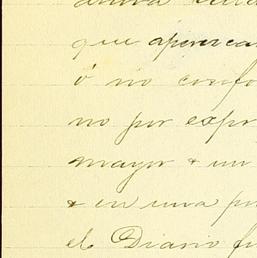 que aparezcan
ó no confo
no por expr
mayor & un
& en una po
el Diario fu